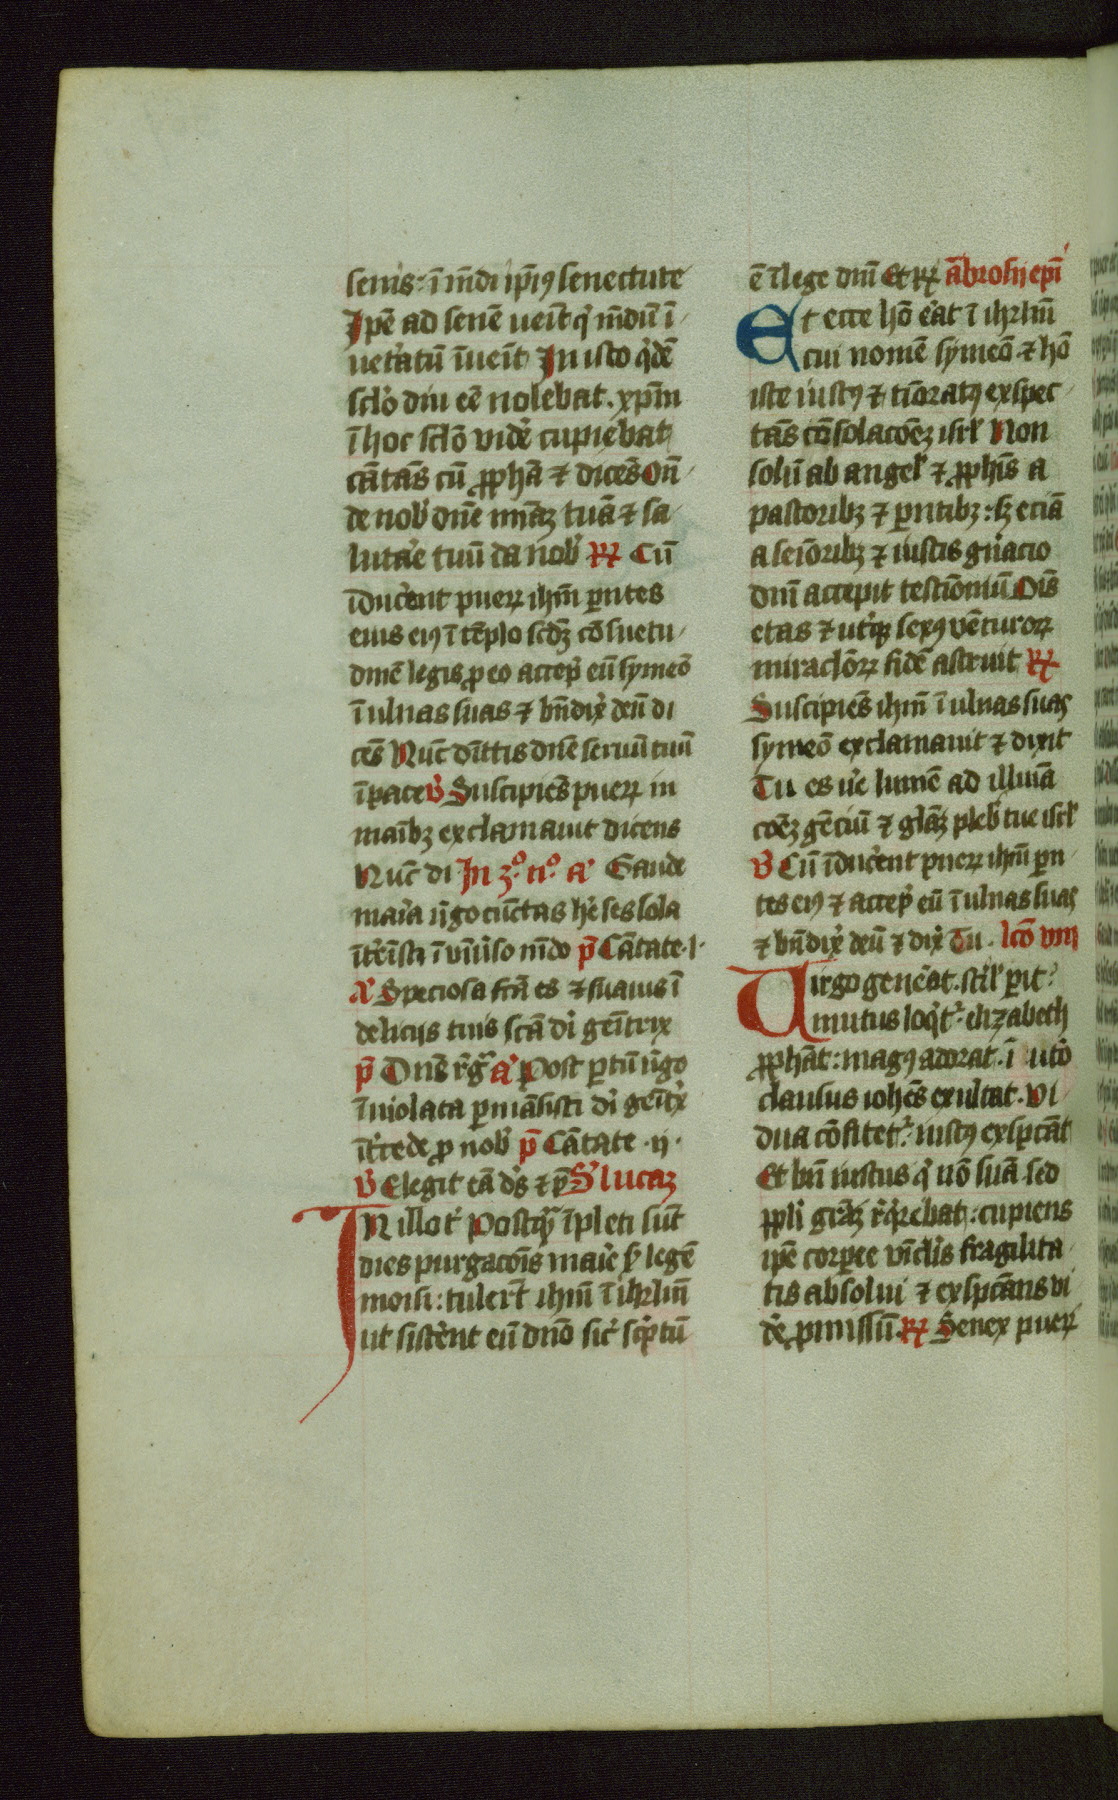 senis: ī mūdi ip̄iꝰ senectute
Ipē ad senē ueīt q' mūdū ī
uet'atū īueīt In isto q'dē
sc̄lo diu eē nolebat. xp̄m
ī hoc sc̄lo vide' cupiebat
cātās cū ꝓph̄a ⁊ dicēs On̄
de nob' dn̄e mīaꝫ tuā ⁊ sa
lutar'e tuū da nob' ꝶ Cū
īduc'ent pueꝝ ih̄m p̄ntes
eius eiꝰ ī tēplo scd̄ꝫ cōsuetu
dinē legis ꝓ eo accep' eū symeō
ī ulnas suas ⁊ bn̄dix' deū di
cēs Nūc dīttis dn̄e seruū tuū
ī pace v' Suscipiēs pueꝝ in
manibꝫ exclamauit dicens
Nūc di In 3° n° a' Gaude
mar'ia u'go cūctas he'ses sola
īt'eīsti ī vniu'so mūdo p̄ Cātate. i.
a' Speciosa fcā es ⁊ suauis ī
delicijs tuis scā di' gen̄itrix
p̄ Dn̄s r̄g' a' Post ꝑtū u'go
īuiolata ꝑmāsisti di' gen̄it'x
īt'cede ꝓ nob' p̄ Cātate . ij .
v' Elegit eā d's ⁊ p̄ S' lucaꝫ
In illo t' Postq̄ īpleti sūt
dies purgacōis mar'ie s' legē
moisi: tuler̄t ih̄m ī ih'rlm̄
ut sist'ent eū dn̄o sic' sc'ptū
ē ī lege dn̄i Et ꝶ ābrosij ep̄i
Et ecce hō e'at ī ih'rlm̄
cui nomē symeō ⁊ hō
iste iustꝰ ⁊ tīoratꝰ exspec
tās cōsolacōeꝫ isrl' Non
solū ab angel' ⁊ ꝓph̄is a
pastoribꝫ ⁊ ꝑntibꝫ: sꝫ eciā
a seīoribꝫ ⁊ iustis gn̄acio
dn̄i accepit testīoniū Oīs
etas ⁊ ut'qꝫ sexꝰ vēturoꝝ
miraclōꝝ fidē astruit ꝶ
Suscipiēs ih̄m ī ulnas suas
symeō exclamauit ⁊ dixit
Tu es u'e lumē ad illuīa
cōeꝫ gēciū ⁊ gl'aꝫ pleb' tue isrl'
v' Cū īduc'ent pueꝝ ih̄m ꝑn
tes eiꝰ ⁊ accep' eū ī ulnas suas
⁊ bn̄dix' deū ⁊ dix' Tu . lcō viij
Virgo gen'eat. stil' pit'
mutus loq't'. elizabeth
ꝓph̄at: magꝰ adorat. ī uto'
clausus ioh̄es exultat. vi
dua cōfitet': iustꝰ exspc̄at
Et bn̄ iustus q' nō suā sed
ppli' gr̄aꝫ r'q'rebat: cupiens
ipē corꝑee vīclis fragilita
tis absolui ⁊ exspcāns vi
de' ꝓmissū. ꝶ Senex pueꝝ